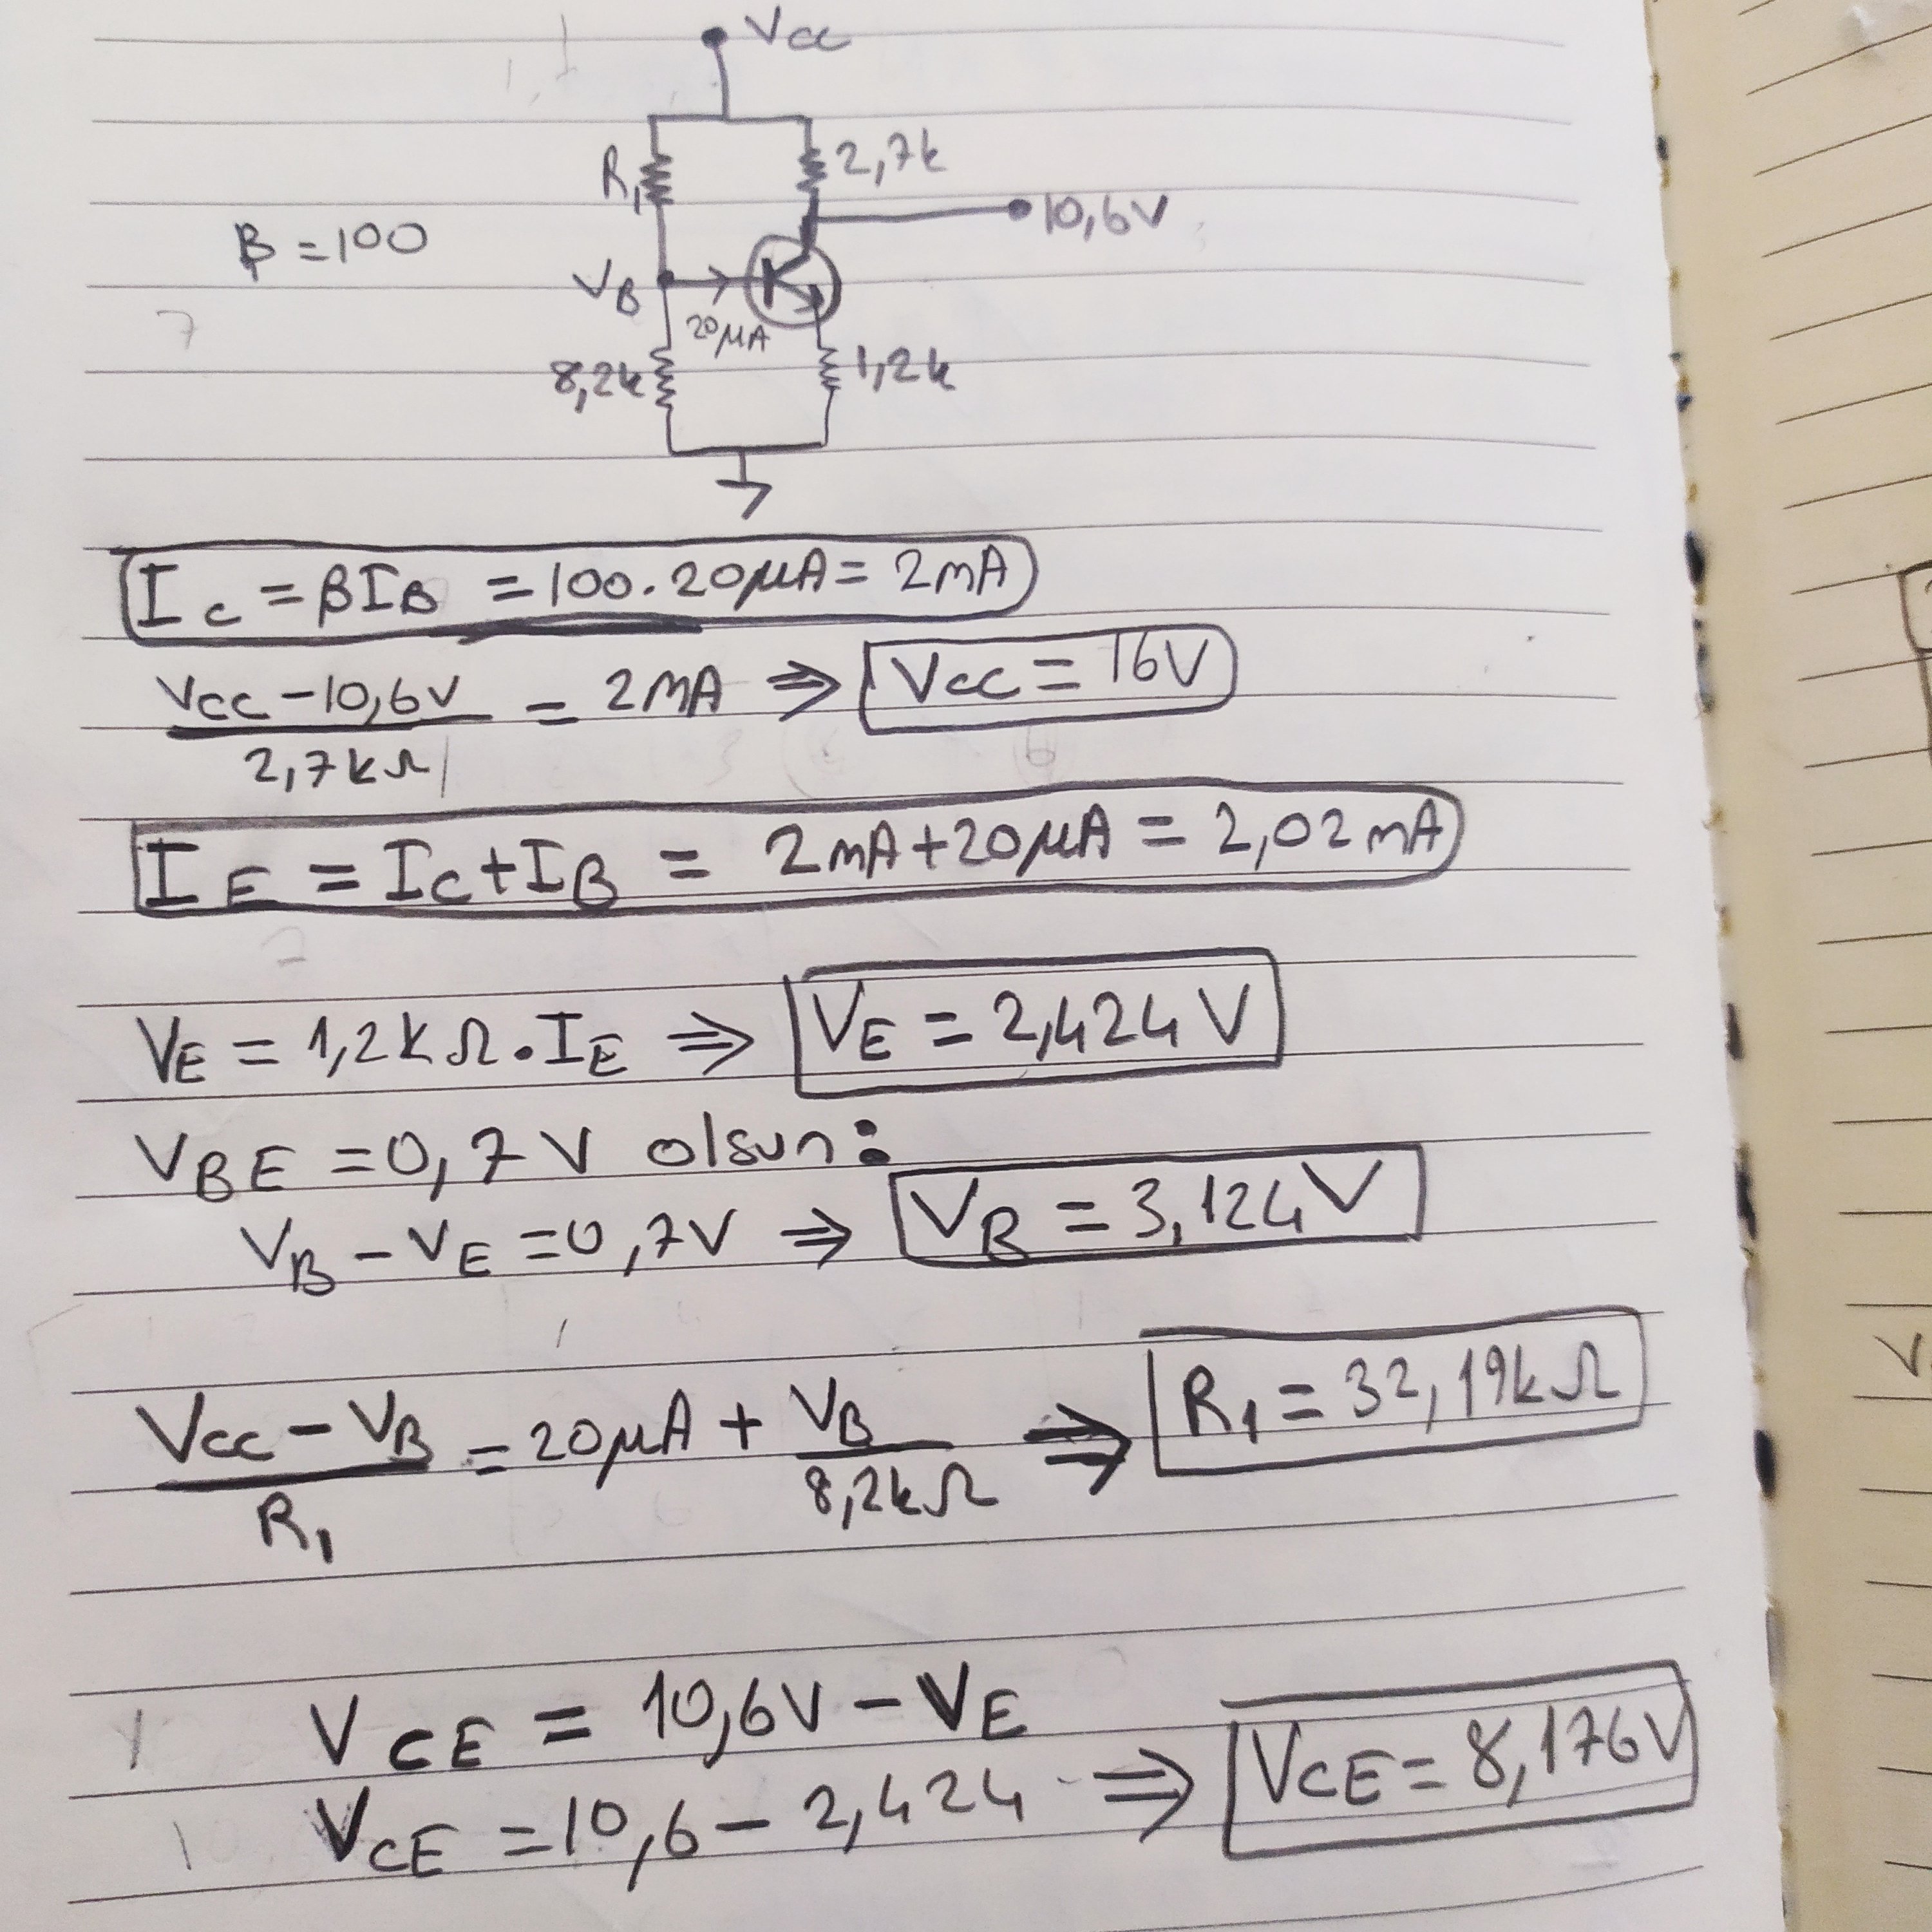 Vcc
R₁
2,7k
10,6V
β = 100
V_B
20μA
8,2k
1,2k
I_C = βI_B = 100.20μA = 2mA
(Vcc - 10,6V) / 2,7kΩ = 2mA ⇒ Vcc = 16V
I_E = I_C + I_B = 2mA + 20μA = 2,02mA
V_E = 1,2kΩ.I_E ⇒ V_E = 2,424V
V_BE = 0,7V olsun:
V_B - V_E = 0,7V ⇒ V_B = 3,124V
(Vcc - V_B) / R₁ = 20μA + V_B / 8,2kΩ ⇒ R₁ = 32,19kΩ
V_CE = 10,6V - V_E
V_CE = 10,6 - 2,424 ⇒ V_CE = 8,176V